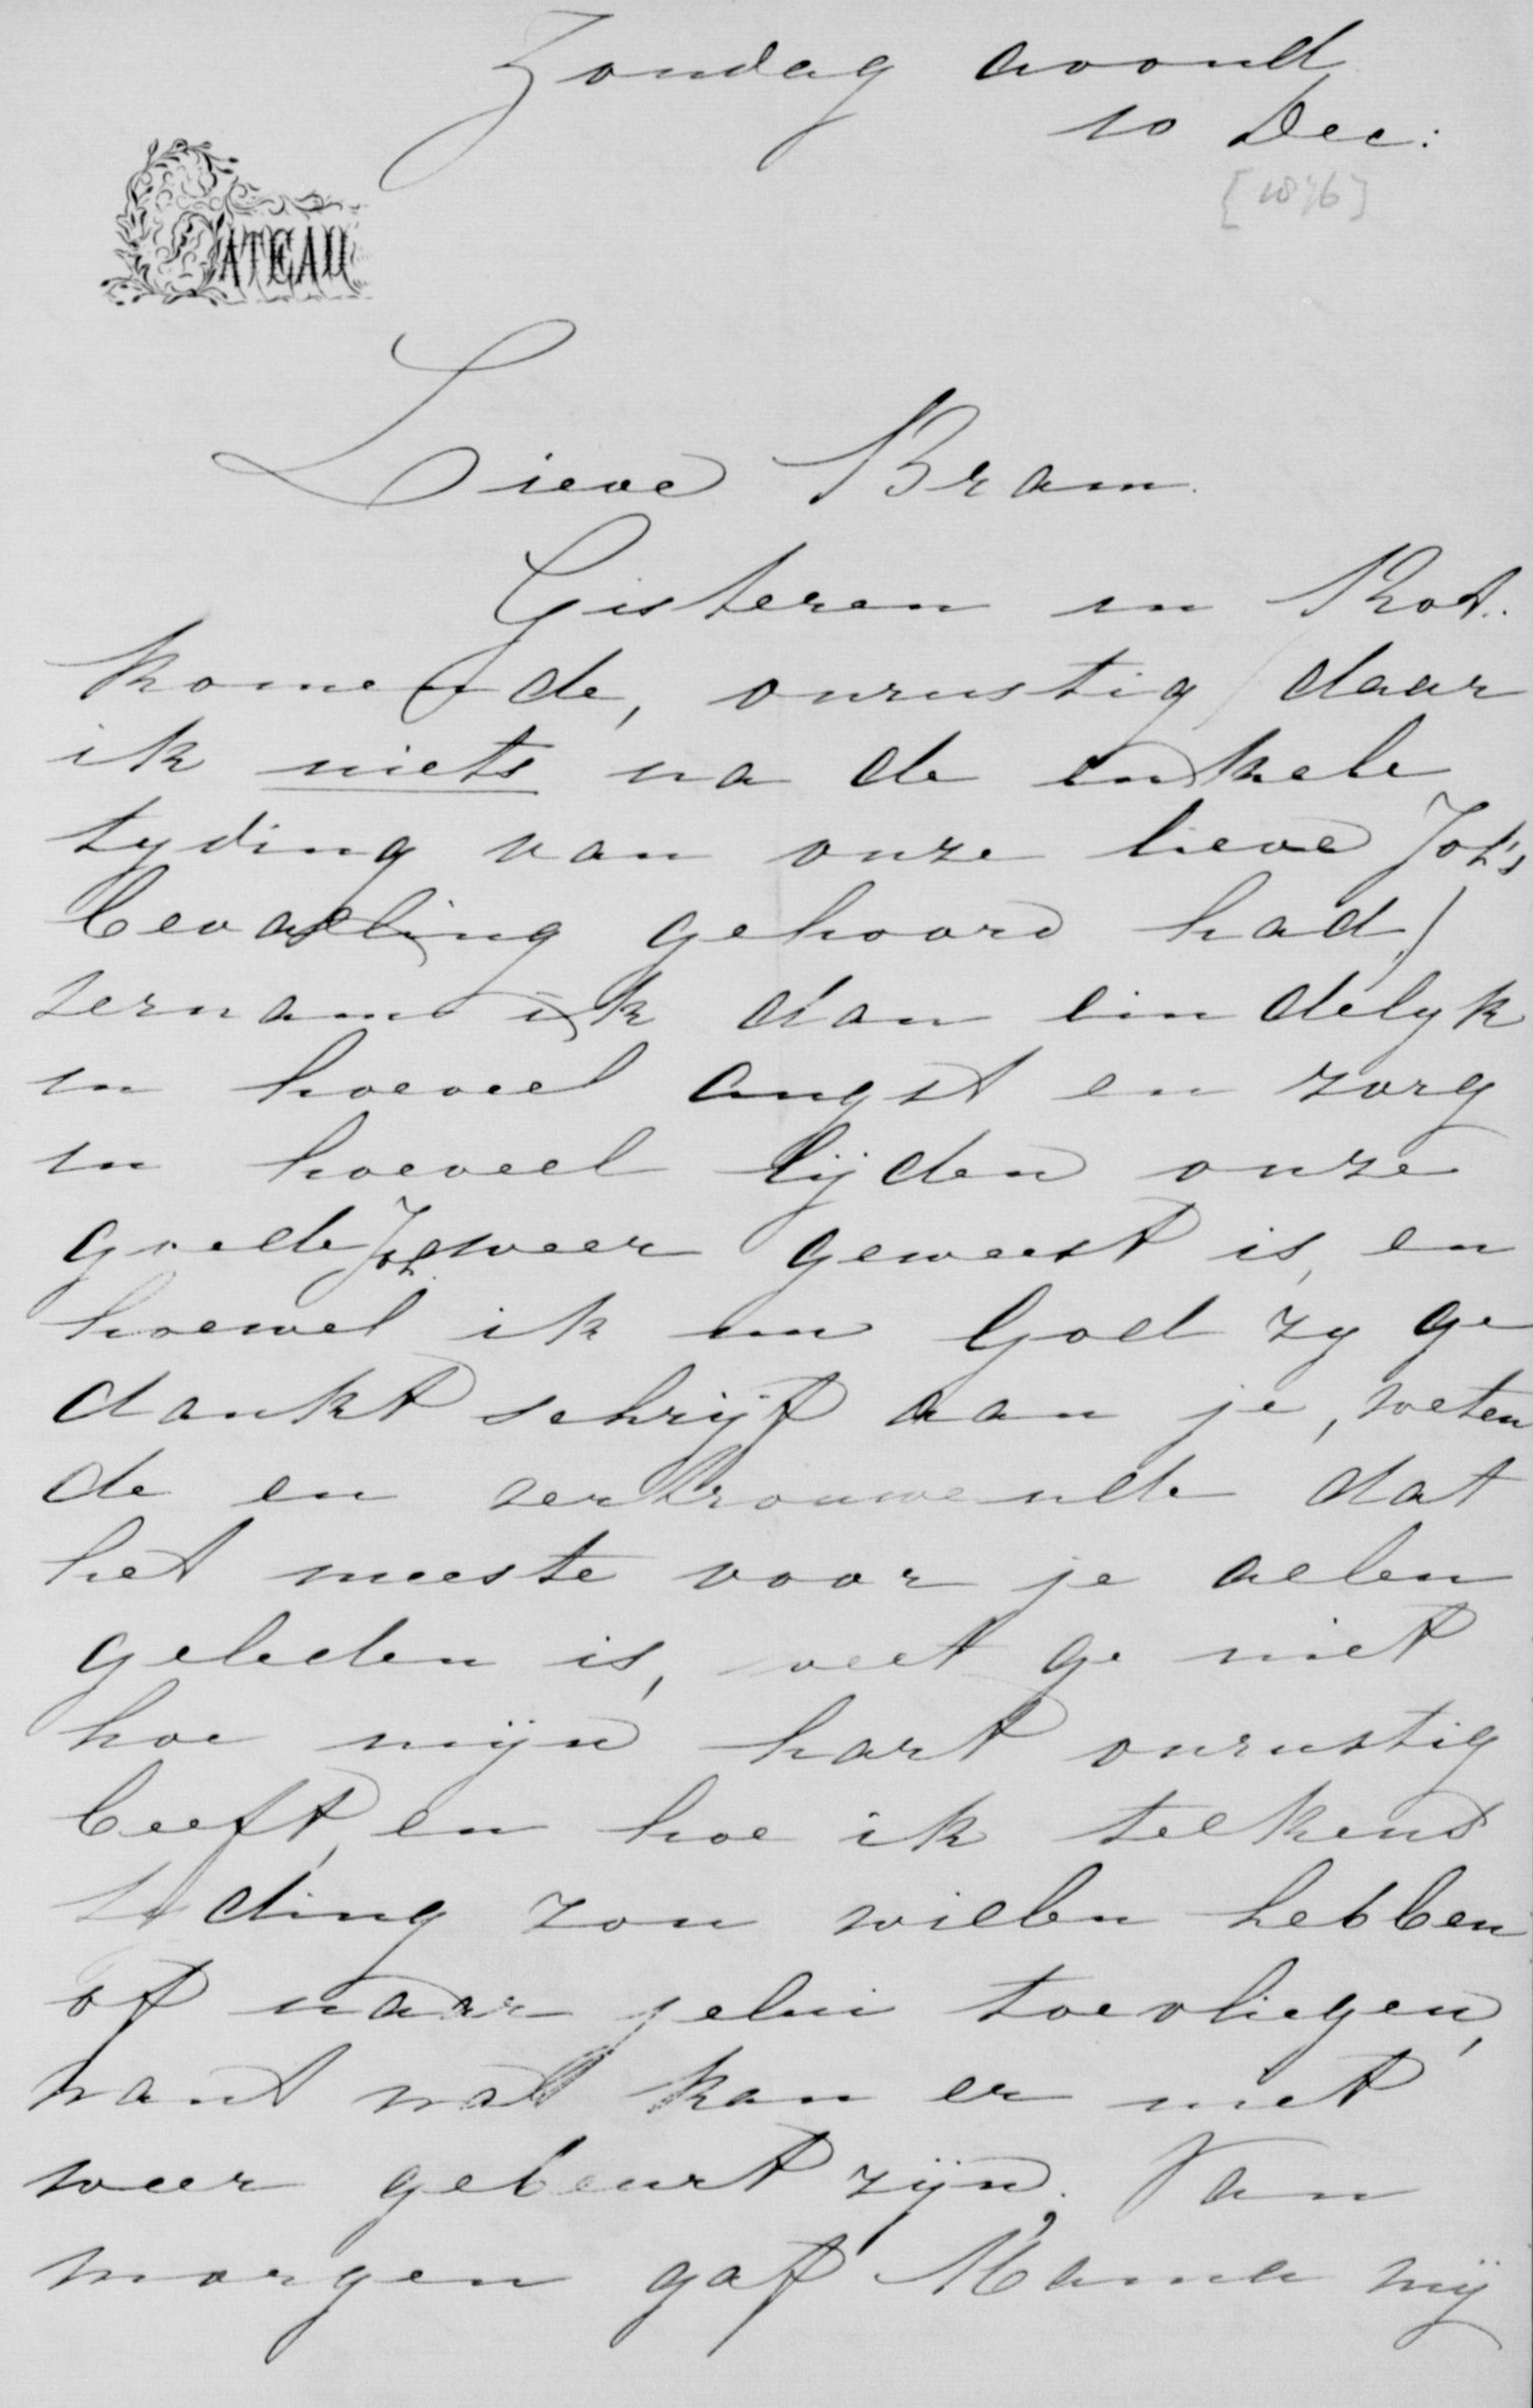 Zondag avond
10 Dec:
[1876]
CATEAU
Lieve Bram.
Gisteren in Rot.
komende, onrustig (daar
ik niets na de enkele
tyding van onze lieve Joh's
bevalling gehoord had)
vernam ik dan eindelyk
in hoeveel angst en zorg
in hoeveel lijden onze
goede Joh. weer geweest is, en
hoewel ik nu God zy ge
dankt schrijf aan je, weten
de en vertrouwende dat
het meeste voor je allen
geleden is, weet ge niet
hoe mijn hart onrustig
beeft, en hoe ik telkens
tyding zou willen hebben
of naar jelui toevliegen,
want wat kan er niet
weer gebeurt zijn. Van
morgen gaf Mama mij